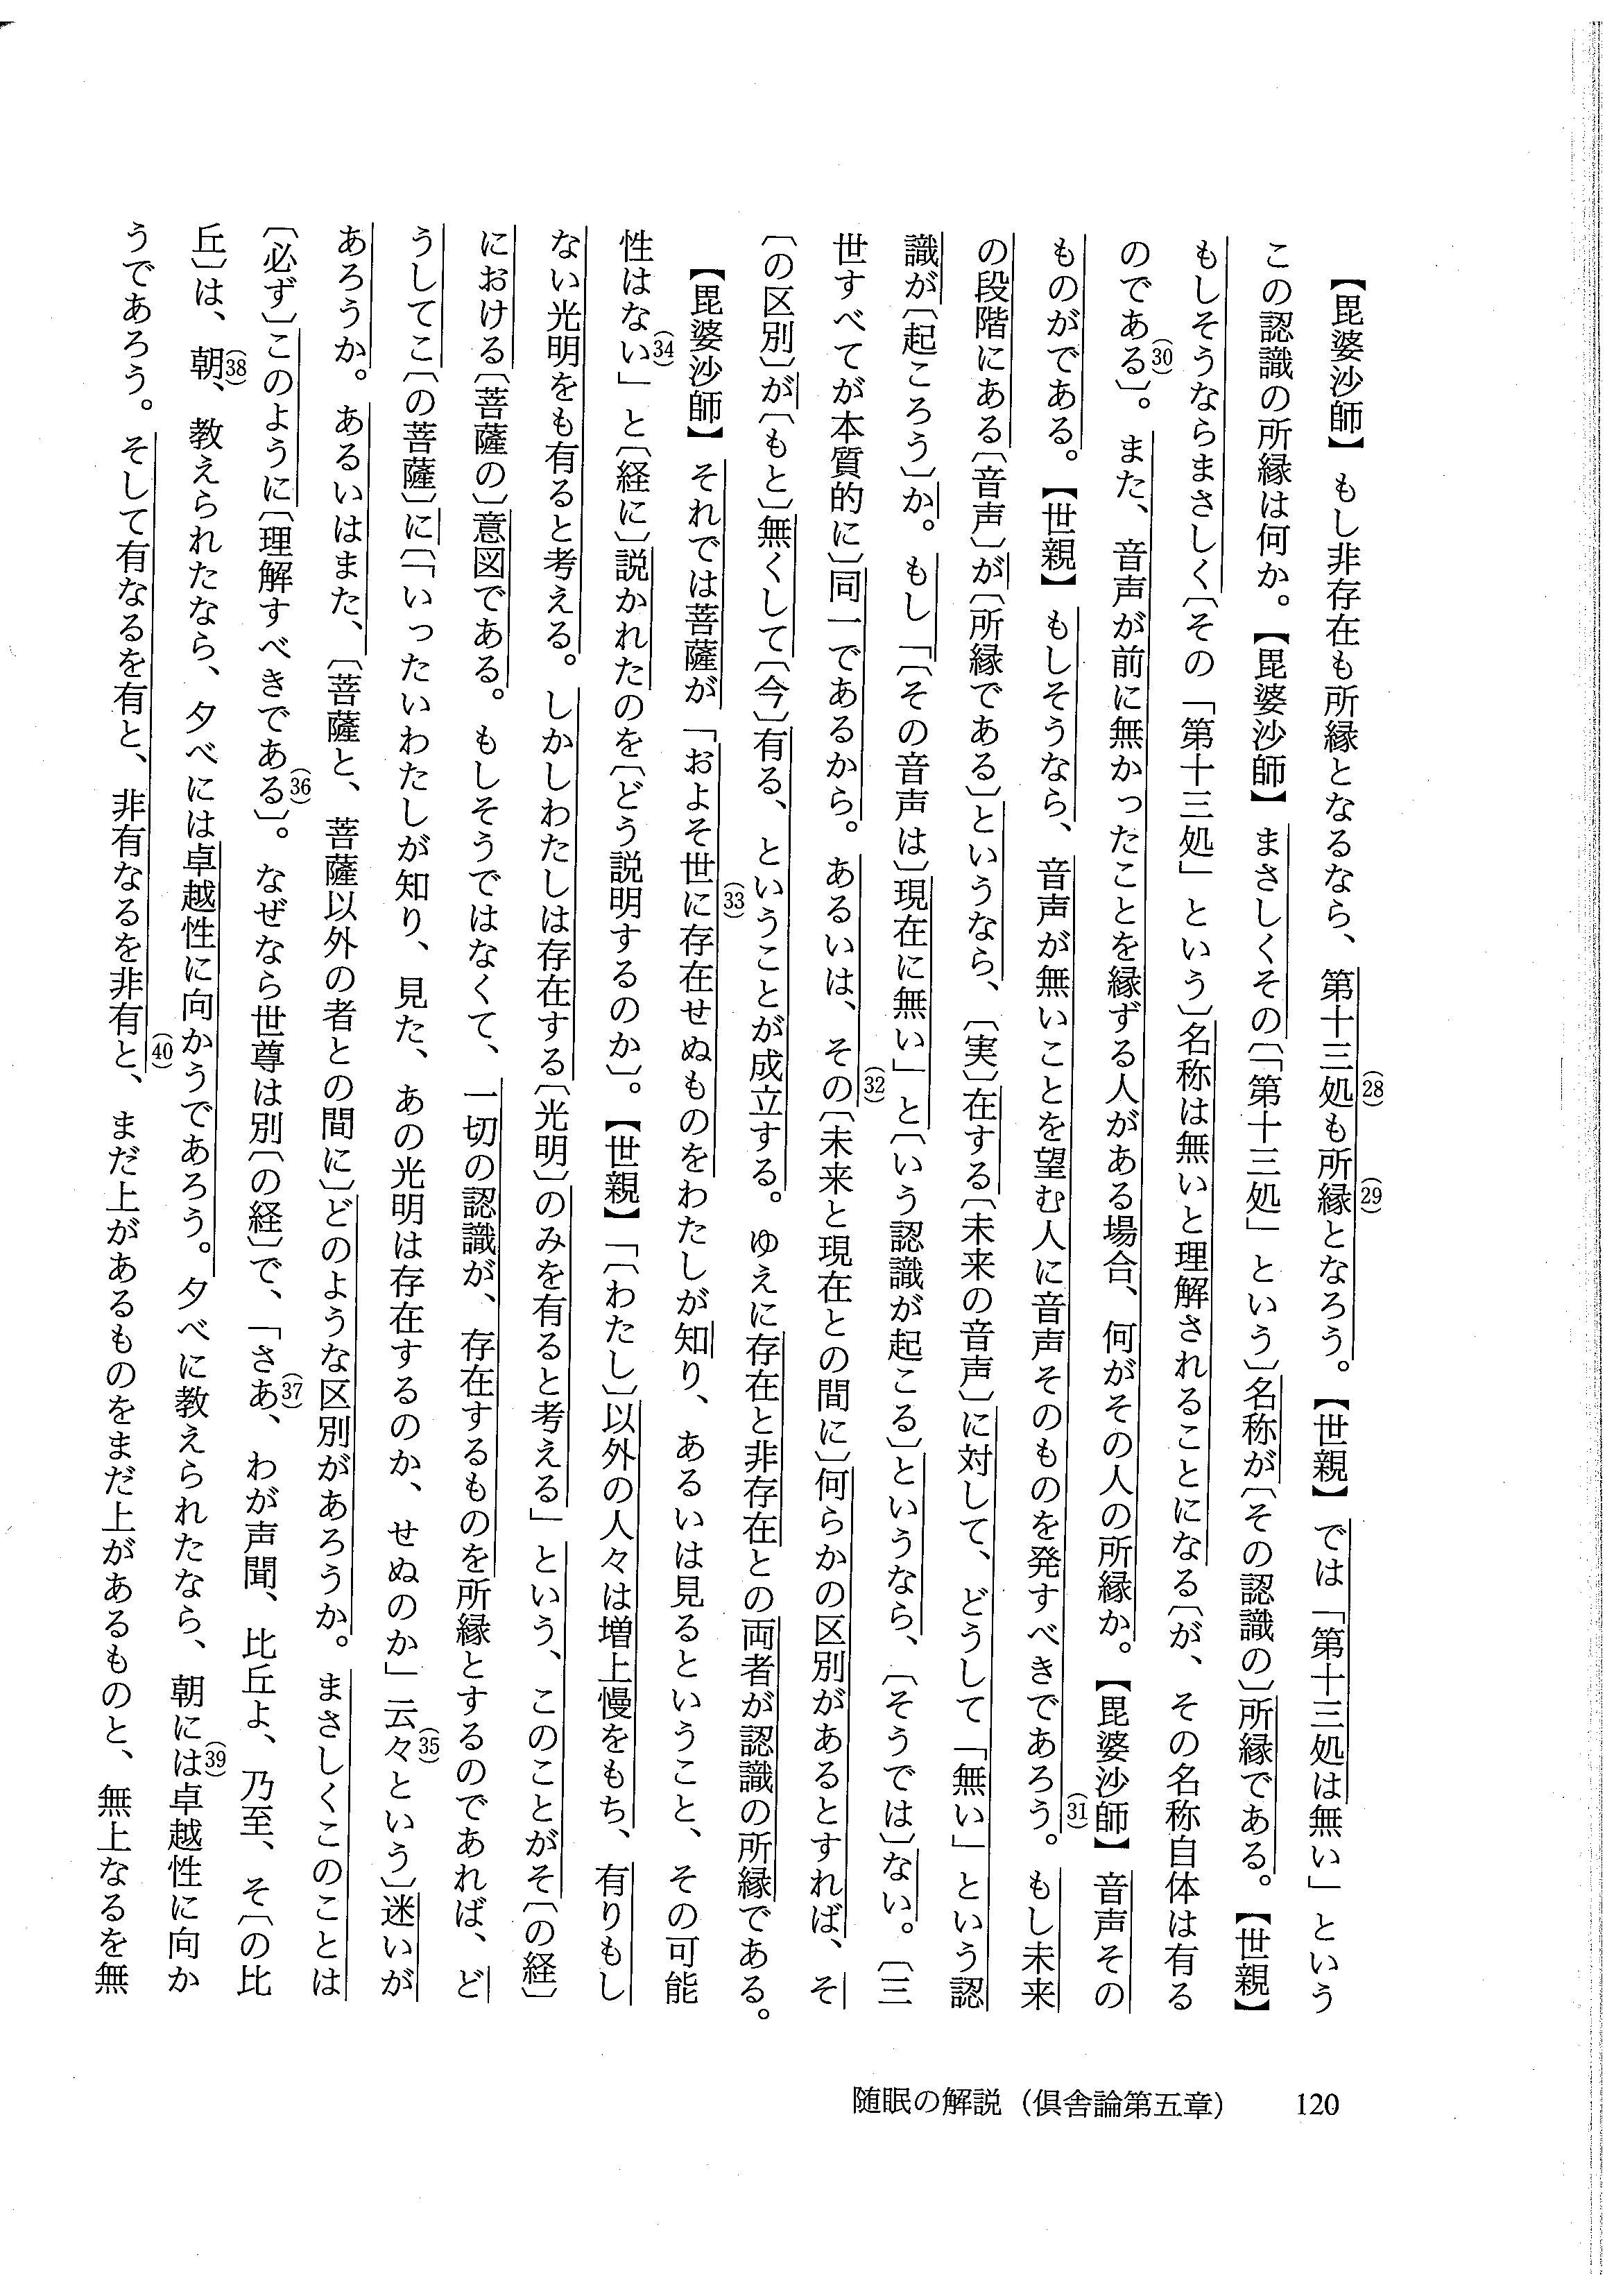 【毘婆沙師】 もし非存在も所縁となるなら、第十三処(28)も所縁(29)となろう。【世親】 では「第十三処は無い」という
この認識の所縁は何か。【毘婆沙師】 まさしくその〔「第十三処」という〕名称が〔その認識の〕所縁である。【世親】
もしそうならまさしく〔その「第十三処」という〕名称は無いと理解されることになる〔が、その名称自体は有る
のである(30)〕。また、音声が前に無かったことを縁ずる人がある場合、何がその人の所縁か。【毘婆沙師】 音声その
ものがである。【世親】 もしそうなら、音声が無いことを望む人に音声そのものを発すべきであろう(31)。もし未来
の段階にある〔音声〕が〔所縁である〕というなら、〔実〕在する〔未来の音声〕に対して、どうして「無い」という認
識が〔起ころう〕か。もし「〔その音声は〕現在に無い」と〔いう認識が起こる〕というなら、〔そうでは〕ない。〔三
世すべてが本質的に〕同一であるから。あるいは、その(32)〔未来と現在との間に〕何らかの区別があるとすれば、そ
〔の区別〕が〔もと〕無くして〔今〕有る、ということが成立する。ゆえに存在と非存在との両者が認識の所縁である。
【毘婆沙師】 それでは菩薩が「およそ世に(33)存在せぬものをわたしが知り、あるいは見るということ、その可能
性はない(34)」と〔経に〕説かれたのを〔どう説明するのか〕。【世親】「〔わたし〕以外の人々は増上慢をもち、有りもし
ない光明をも有ると考える。しかしわたしは存在する〔光明〕のみを有ると考える」という、このことがそ〔の経〕
における〔菩薩の〕意図である。もしそうではなくて、一切の認識が、存在するものを所縁とするのであれば、ど
うしてこ〔の菩薩〕に〔「いったいわたしが知り、見た、あの光明は存在するのか、せぬのか」云々(35)という〕迷いが
あろうか。あるいはまた、〔菩薩と、菩薩以外の者との間に〕どのような区別があろうか。まさしくこのことは
〔必ず〕このように〔理解すべきである(36)〕。なぜなら世尊は別〔の経〕で、「さあ(37)、わが声聞、比丘よ、乃至、そ〔の比
丘〕は、朝(38)、教えられたなら、夕べには卓越性に向かうであろう。夕べに教えられたなら、朝には(39)卓越性に向か
うであろう。そして有なるを有と、非有なるを非有と(40)、まだ上があるものをまだ上があるものと、無上なるを無
随眠の解説（倶舎論第五章） 120